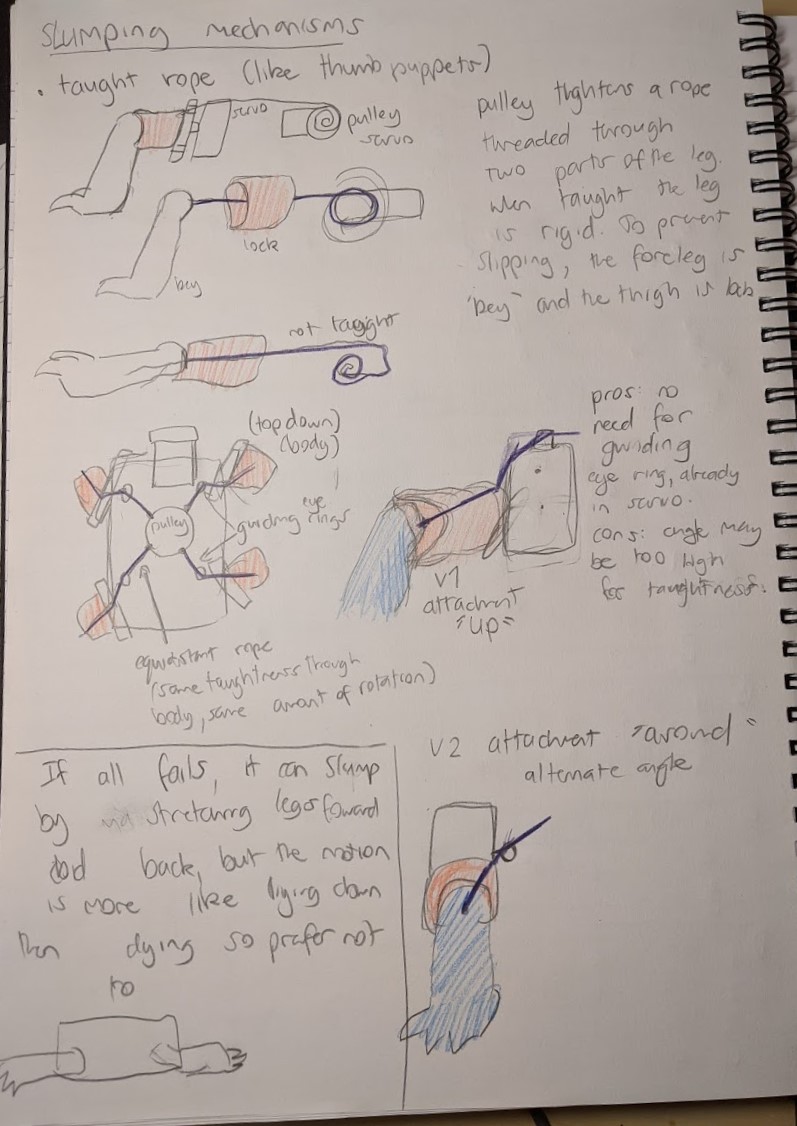 Slumping mechanisms
• taught rope (like thumb puppets)
servo
pulley
servo
lock
key
pulley tightens a rope
threaded through
two parts of the leg.
when taught the leg
is rigid. To prevent
slipping, the foreleg is
"key" and the thigh is lock
not taught
(top down)
(body)
pulley
eye
guiding rings
equidistant rope
(same taughtness through
body, same amount of rotation)
V1
attachment
"up"
pros: no
need for
guiding
eye ring, already
in servo.
cons: angle may
be too high
for taughtness.
If all fails, it can slump
by stretching legs foward
and back, but the motion
is more like lying down
then dying so prefer not
to
V2 attachment "around"
alternate angle